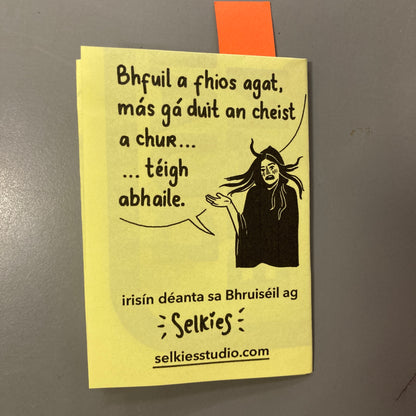 Bhfuil a fhios agat,
más gá duit an cheist
a chur...
... téigh
abhaile.
irisín déanta sa Bhruiséil ag
Selkies
selkiesstudio.com